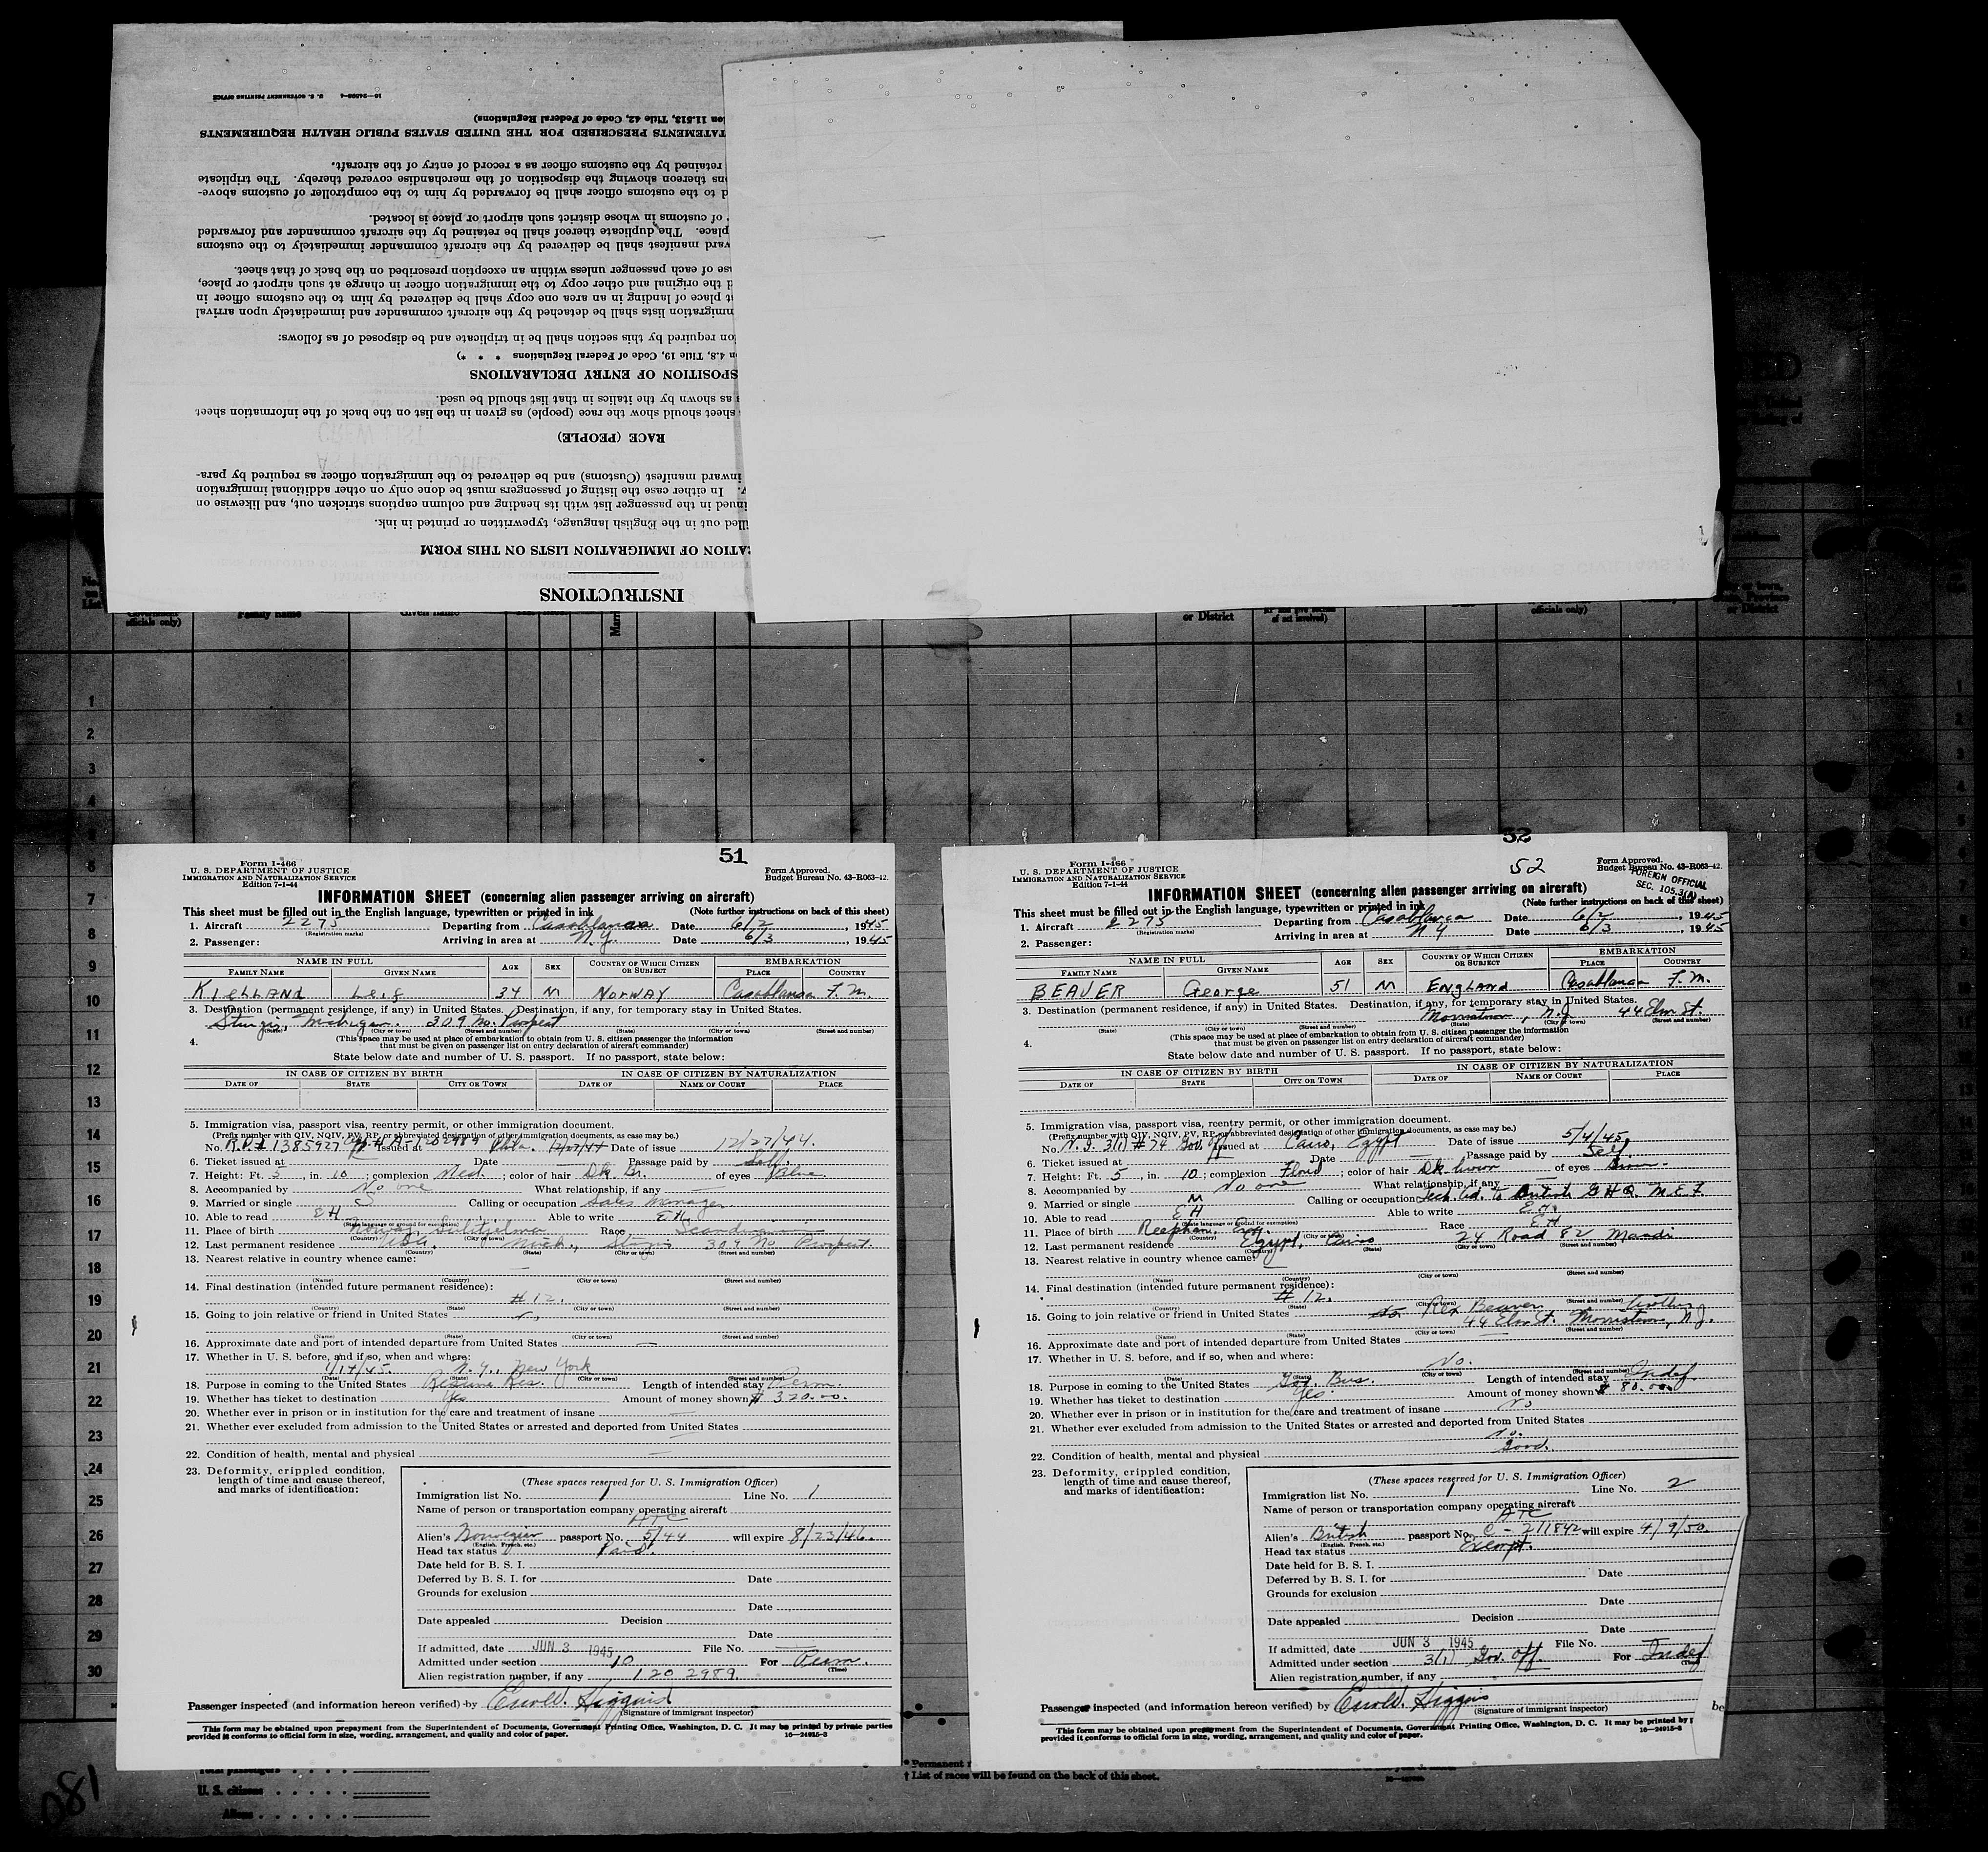 INSTRUCTIONS
RATION OF IMMIGRATION LISTS ON THIS FORM
illed out in the English language, typewritten or printed in ink.
inued in the passenger list with its heading and column captions stricken out, and likewise on
y. In either case the listing of passengers must be done only on other additional immigration
inward manifest (Customs) and be delivered to the immigration officer as required by para-
RACE (PEOPLE)
sheet should show the race (people) as given in the list on the back of the information sheet
as shown by the italics in that list should be used.
SPOSITION OF ENTRY DECLARATIONS
on 4.8, Title 19, Code of Federal Regulations * * *)
on required by this section shall be in triplicate and be disposed of as follows:
mmigration lists shall be detached by the aircraft commander and immediately upon arrival
t place of landing in an area one copy shall be delivered by him to the customs officer in
d the original and other copy to the immigration officer in charge at such airport or place,
ase of each passenger unless within an exception prescribed on the back of that sheet.
ward manifest shall be delivered by the aircraft commander immediately to the customs
place. The duplicate thereof shall be retained by the aircraft commander and forwarded
of customs in whose district such airport or place is located.
d to the customs officer shall be forwarded by him to the comptroller of customs above-
ons thereon showing the disposition of the merchandise covered thereby. The triplicate
retained by the customs officer as a record of entry of the aircraft.
TATEMENTS PRESCRIBED FOR THE UNITED STATES PUBLIC HEALTH REQUIREMENTS
on 11.513, Title 42, Code of Federal Regulations)
16—24598-4 U. S. GOVERNMENT PRINTING OFFICE
officials only) Family name Given name or District officials only) or District
51
Form I-466
U. S. DEPARTMENT OF JUSTICE
IMMIGRATION AND NATURALIZATION SERVICE
Edition 7-1-44
Form Approved.
Budget Bureau No. 43-R063-42.
INFORMATION SHEET (concerning alien passenger arriving on aircraft)
This sheet must be filled out in the English language, typewritten or printed in ink (Note further instructions on back of this sheet)
1. Aircraft 2273 Departing from Casablanca Date 6/2, 1945
(Registration marks)
2. Passenger: Arriving in area at N.Y. Date 6/3, 1945
NAME IN FULL AGE SEX COUNTRY OF WHICH CITIZEN OR SUBJECT EMBARKATION
FAMILY NAME GIVEN NAME PLACE COUNTRY
KIELLAND Leif 34 M NORWAY Casablanca F.M.
3. Destination (permanent residence, if any) in United States. Destination, if any, for temporary stay in United States.
Sturgis, Michigan. 309 No. Prospect
(City or town) (Street and number) (State) (City or town) (Street and number)
4. (This space may be used at place of embarkation to obtain from U. S. citizen passenger the information
that must be given on passenger list on entry declaration of aircraft commander)
State below date and number of U. S. passport. If no passport, state below:
IN CASE OF CITIZEN BY BIRTH IN CASE OF CITIZEN BY NATURALIZATION
DATE OF STATE CITY OR TOWN DATE OF NAME OF COURT PLACE
5. Immigration visa, passport visa, reentry permit, or other immigration document.
(Prefix number with QIV, NQIV, PV, RP, or abbreviated designation of other immigration documents, as case may be.)
No. R.P.# 1385927 A-1202989 Issued at Phila. 12/27/44 Date of issue 12/27/44.
6. Ticket issued at Date Passage paid by Self.
7. Height: Ft. 5, in. 10; complexion Med.; color of hair Dk Br. of eyes Blue
8. Accompanied by No one What relationship, if any —
9. Married or single S Calling or occupation Sales Manager
10. Able to read EH Able to write EH
(State language or ground for exemption)
11. Place of birth Norway Sulitjelma Race Scandinavian
(Country) (City or town)
12. Last permanent residence USA. Mich., Sturgis 309 No Prospect.
(Country) (State) (City or town) (Street and number)
13. Nearest relative in country whence came:
—
(Name) (Country) (City or town) (Street and number)
14. Final destination (intended future permanent residence):
# 12.
(Country) (State) (City or town) (Street and number)
15. Going to join relative or friend in United States
(Name) (State) (City or town) (Street and number)
16. Approximate date and port of intended departure from United States —
17. Whether in U. S. before, and if so, when and where:
1/17/45. N.Y., New York
(Date) (State) (City or town) (Street and number)
18. Purpose in coming to the United States Resume Res. Length of intended stay Perm.
19. Whether has ticket to destination Yes Amount of money shown $ 320.00.
20. Whether ever in prison or in institution for the care and treatment of insane —
21. Whether ever excluded from admission to the United States or arrested and deported from United States
—
22. Condition of health, mental and physical —
23. Deformity, crippled condition,
length of time and cause thereof,
and marks of identification:
(These spaces reserved for U. S. Immigration Officer)
Immigration list No. 1 Line No. 1
Name of person or transportation company operating aircraft
ATC
Alien's Norwegian passport No. 5/44 will expire 8/23/46.
(English, French, etc.)
Head tax status Paid.
Date held for B. S. I.
Deferred by B. S. I. for Date
Grounds for exclusion
Date
Date appealed Decision
Date
If admitted, date JUN 3 1945 File No. —
Admitted under section 10 For Perm.
(Time)
Alien registration number, if any 120 2989
Passenger inspected (and information hereon verified) by Higgins
(Signature of immigrant inspector)
This form may be obtained upon prepayment from the Superintendent of Documents, Government Printing Office, Washington, D. C. It may be printed by private parties
provided it conforms to official form in size, wording, arrangement, and quality and color of paper. 16—24915-2
52
52
Form I-466
U. S. DEPARTMENT OF JUSTICE
IMMIGRATION AND NATURALIZATION SERVICE
Edition 7-1-44
Form Approved.
Budget Bureau No. 43-R063-42.
FOREIGN OFFICIAL
SEC. 105.3(A)
INFORMATION SHEET (concerning alien passenger arriving on aircraft)
This sheet must be filled out in the English language, typewritten or printed in ink (Note further instructions on back of this sheet)
1. Aircraft 2273 Departing from Casablanca Date 6/2, 1945
(Registration marks)
2. Passenger: Arriving in area at N Y Date 6/3, 1945
NAME IN FULL AGE SEX COUNTRY OF WHICH CITIZEN OR SUBJECT EMBARKATION
FAMILY NAME GIVEN NAME PLACE COUNTRY
BEAVER George 51 M ENGLAND Casablanca F.M.
3. Destination (permanent residence, if any) in United States. Destination, if any, for temporary stay in United States.
Morristown, N.J. 44 Elm St.
(State) (City or town) (Street and number) (State) (City or town) (Street and number)
4. (This space may be used at place of embarkation to obtain from U. S. citizen passenger the information
that must be given on passenger list on entry declaration of aircraft commander)
State below date and number of U. S. passport. If no passport, state below:
IN CASE OF CITIZEN BY BIRTH IN CASE OF CITIZEN BY NATURALIZATION
DATE OF STATE CITY OR TOWN DATE OF NAME OF COURT PLACE
5. Immigration visa, passport visa, reentry permit, or other immigration document.
(Prefix number with QIV, NQIV, PV, RP, or abbreviated designation of other immigration documents, as case may be.)
No. N.I. 3(1) #74 Gov. Off Issued at Cairo, Egypt Date of issue 5/4/45,
6. Ticket issued at Date — Passage paid by Self.
7. Height: Ft. 5, in. 10; complexion Florid; color of hair Dk brown of eyes Brown.
8. Accompanied by No one What relationship, if any —
9. Married or single M Calling or occupation to British GHQ M.E.F
10. Able to read EH Able to write EH.
(State language or ground for exemption)
11. Place of birth Reepham, Eng. Race EH
(Country) (City or town)
12. Last permanent residence Egypt, Cairo 24 Road 82 Maadi
(Country) (State) (City or town) (Street and number)
13. Nearest relative in country whence came: —
(Name) (Country) (City or town) (Street and number)
14. Final destination (intended future permanent residence):
# 12.
(Country) (State) (City or town) (Street and number)
15. Going to join relative or friend in United States Rex Beaver brother
44 Elm St. Morristown, N.J.
(Name) (State) (City or town) (Street and number)
16. Approximate date and port of intended departure from United States —
17. Whether in U. S. before, and if so, when and where: No.
(Date) (State) (City or town) (Street and number)
18. Purpose in coming to the United States Gov. Bus. Length of intended stay Indef.
19. Whether has ticket to destination Yes. Amount of money shown $ 80.00
20. Whether ever in prison or in institution for the care and treatment of insane No
21. Whether ever excluded from admission to the United States or arrested and deported from United States
No.
22. Condition of health, mental and physical Good.
23. Deformity, crippled condition,
length of time and cause thereof,
and marks of identification:
(These spaces reserved for U. S. Immigration Officer)
Immigration list No. 1 Line No. 2
Name of person or transportation company operating aircraft
ATC
Alien's British passport No. C - 211842 will expire 4/9/50.
(English, French, etc.)
Head tax status Exempt.
Date held for B. S. I.
Deferred by B. S. I. for Date
Grounds for exclusion
Date
Date appealed Decision
Date
If admitted, date JUN 3 1945 File No. —
Admitted under section 3(1) Gov. Off. For Indef
(Time)
Alien registration number, if any
Passenger inspected (and information hereon verified) by Higgins
(Signature of immigrant inspector)
This form may be obtained upon prepayment from the Superintendent of Documents, Government Printing Office, Washington, D. C. It may be printed by p
provided it conforms to official form in size, wording, arrangement, and quality and color of paper. 16—24915-2
be
* Permanent r
† List of races will be found on the back of this sheet.
Total passengers
U. S. citizens
Aliens
081